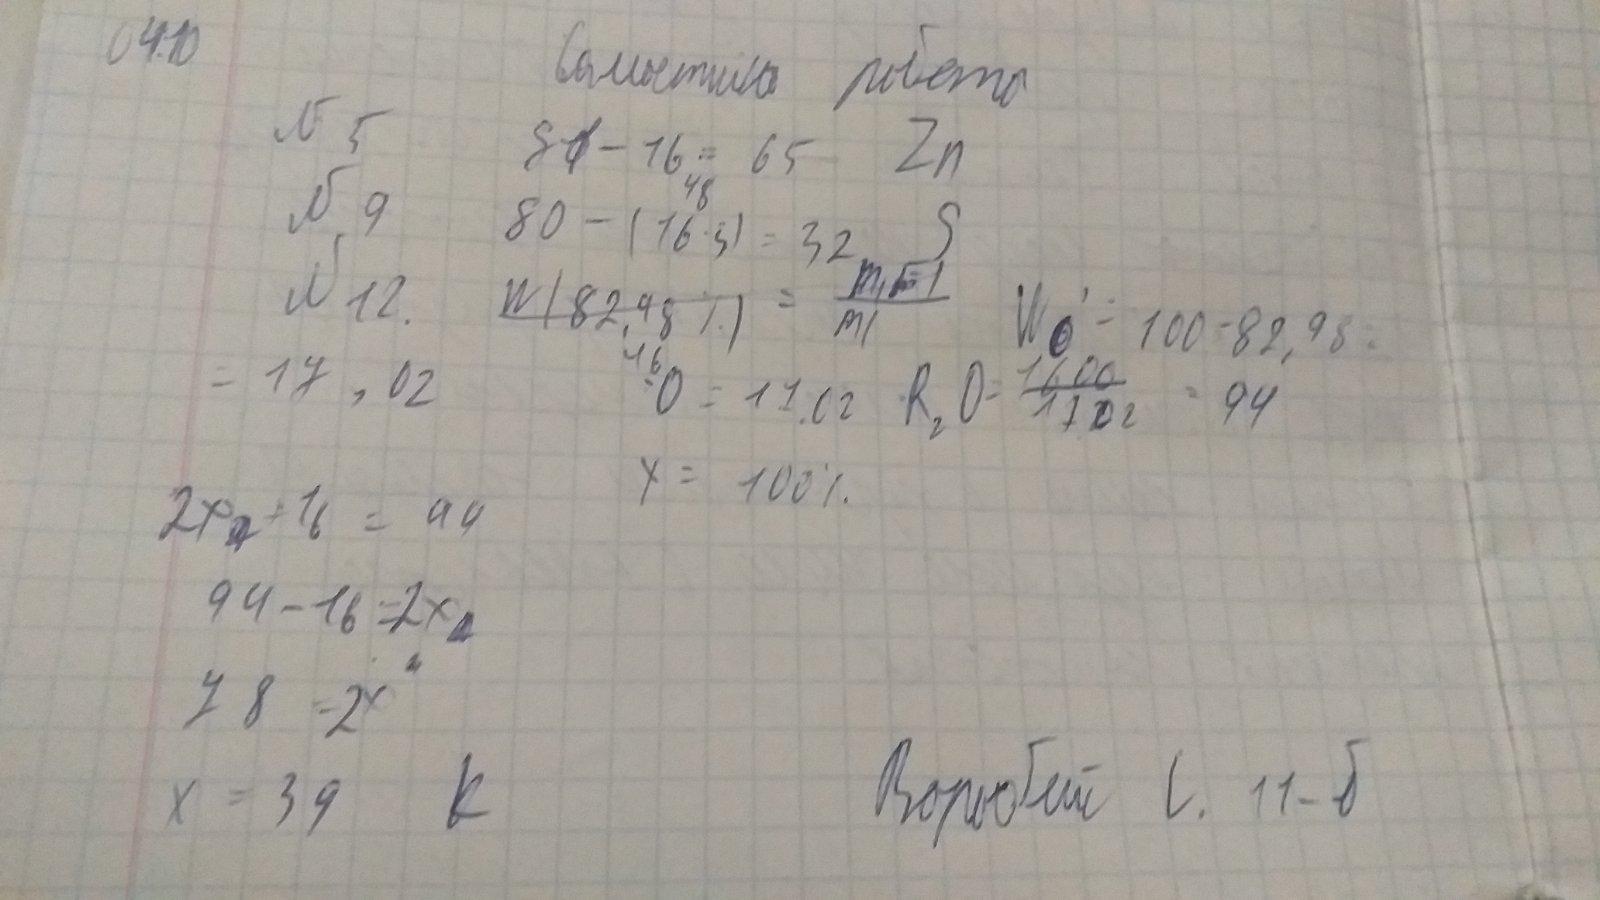 04.10
Самостійна робота
№ 5 81 - 16 = 65 Zn
48
№ 9 80 - (16·3) = 32 S
№ 12. W(82,98%) = W O = 100 - 82,98 =
= 17,02
16
O = 17.02 R2O = 1600/1702 = 94
x = 100%.
2x + 16 = 94
94 - 16 = 2x
78 = 2x
x = 39 K
Воробей С. 11-б